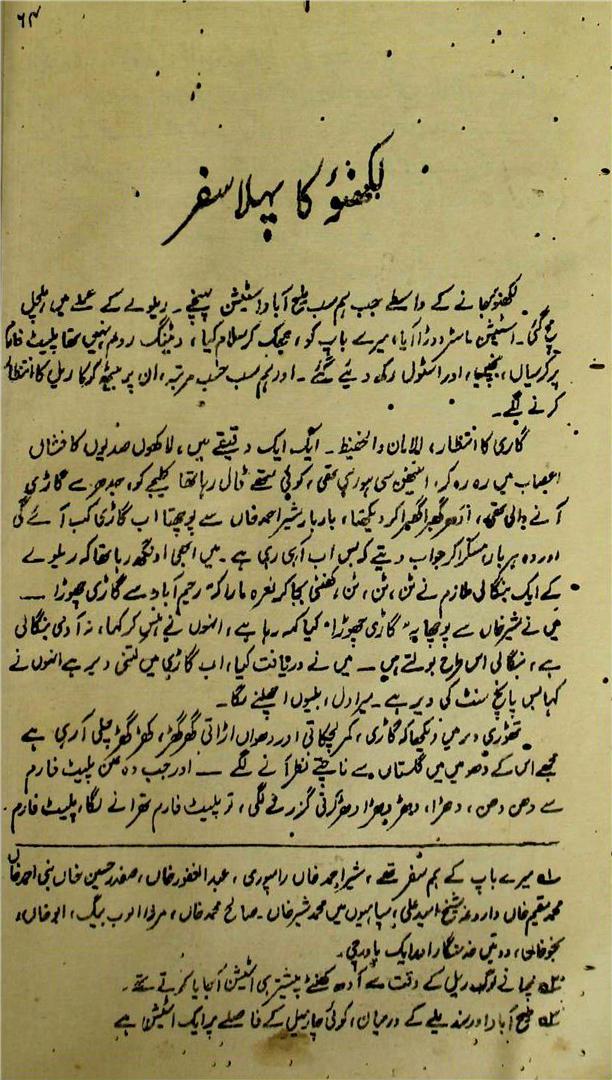 ۶۴
لکھنؤ کا پہلا سفر
لکھنؤ جانے کے واسطے جب ہم سب ملیح آباد اسٹیشن پہنچے۔ ریلوے کے عملے میں ہلچل
مچ گئی۔ اسٹیشن ماسٹر دوڑا آیا، میرے باپ کو، جھک کر سلام کیا، ویٹنگ روم نہیں تھا پلیٹ فارم
پر کرسیاں، بنچیں، اور اسٹول رکھ دیئے گئے۔ اور ہم سب حسب مرتبہ، ان پر بیٹھ کر کا ریل کا انتظار
کرنے لگے۔
گاری کا انتظار، للامان والحفیظ۔ ایک ایک دقیقے میں، لاکھوں صدیوں کا فشاں
اعصاب میں رہ رہ کر، اینٹھن سی ہو رہی تھی، کوئی ستھے ڈال رہا تھا کلیجے کو، جدھر سے گاڑی
آنے والی تھی، اُدھر گھبرا گھبرا کر دیکھتا، بار بار شیر احمد خاں سے پوچھتا اب گاڑی کب آئے گی
اور وہ ہر بار مسکرا کر جواب دیتے کہ بس اب آ ہی رہی ہے۔ میں ابھی اونگھ رہا تھا کہ ریلوے
کے ایک بنگالی ملازم نے ٹن، ٹن، ٹن، گھنٹی بجا کر نعرہ مارا کہ "رحیم آباد سے گاڑی چھوڑا ــــ
میں نے شیر خاں سے پوچھا یہ "گاڑی چھوڑا" کیا کہہ رہا ہے، انہوں نے ہنس کر کہا، یہ آدمی بنگالی
ہے، بنگالی اسی طرح بولتے ہیں ــــ میں نے دریافت کیا، اب گاڑی میں کتنی دیر ہے انہوں نے
کہا بس پانچ منٹ کی دیر ہے۔ میرا دل، بلیوں اچھلنے لگا۔
تھوڑی دیر میں دیکھا کہ گاڑی، کمر لچکاتی اور دھواں اڑاتی گھڑ گھڑ، کھڑ کھڑ چلی آ رہی ہے
مجھے اس کے دھوئیں میں گلستاں سے ناچتے نظر آنے لگے ــــ اور جب وہ پلیٹ فارم
سے دھن دھن، دھڑا، دھڑ دھڑا دھڑ کرتی گزرنے لگی، تو پلیٹ فارم تھرانے لگا، پلیٹ فارم
۱؎ میرے باپ کے ہم سفر تھے، شیر احمد خاں رامپوری، عبدالغفور خاں، صفدر حسین خاں نبی احمد خاں
محمد مقیم خاں داروغہ شیخ امید علی، سپاہیوں میں محمد شیر خاں۔ صالح محمد خاں، مرزا ایوب بیگ، ابو خاں،
بجو خاں، دو تین خدمتگار اور ایک باورچی۔
۲؎ پرانے لوگ ریل کے وقت سے آدھ گھنٹے پیشتر ہی اسٹیشن آ جایا کرتے تھے۔
۳؎ ملیح آباد اور سندیلے کے درمیان، کوئی چار میل کے فاصلے پر ایک اسٹیشن ہے